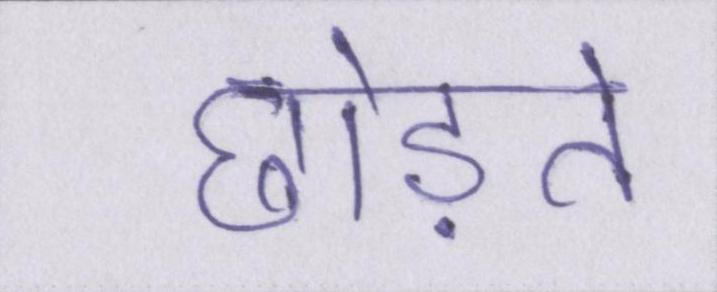 छोड़ते